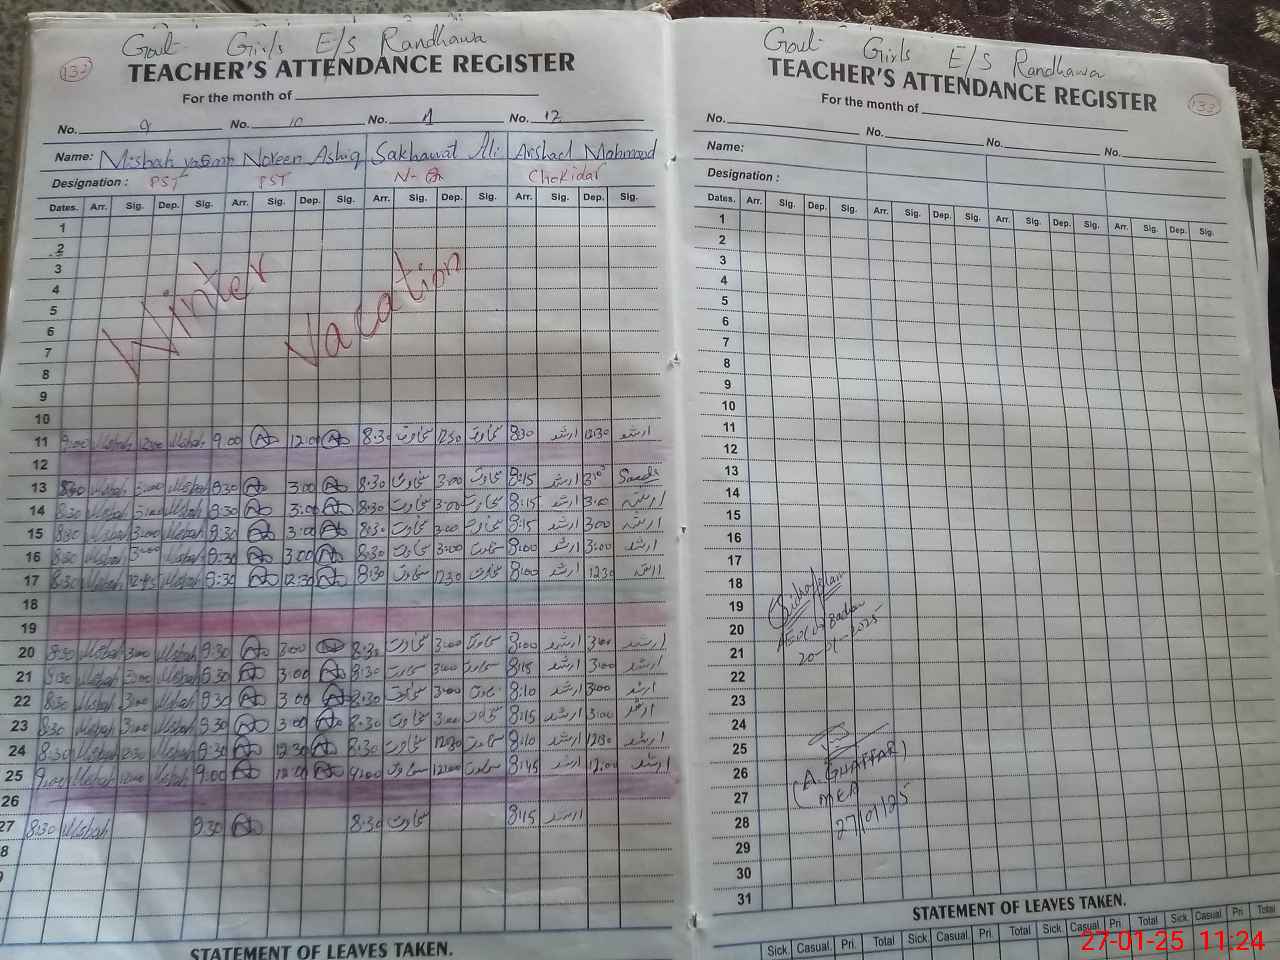 Govt Girls E/S Randhawa
132
TEACHER'S ATTENDANCE REGISTER
For the month of
No. 9 No. 10 No. 11 No. 12
Name: Misbah Noreen Ashiq Sakhawat Ali Arshad Mahmood
Designation : PST PST N-Q Chokidar
Dates. Arr. Sig. Dep. Sig. Arr. Sig. Dep. Sig. Arr. Sig. Dep. Sig. Arr. Sig. Dep. Sig.
1
2
3
4
5
6
7
8
9
Winter Vacation
10
11 9:00 Misbah 12:00 Misbah 9.00 12:00 8:30 سخاوت 12:30 سخاوت 8:30 ارشد 12:30 ارشد
12
13 8:30 Misbah 3:00 Misbah 8:30 3:00 8:30 سخاوت 3:00 سخاوت 8:15 ارشد 3:00
14 8:30 Misbah 3:00 Misbah 8:30 3:00 8:30 سخاوت 3:00 سخاوت 8:15 ارشد 3:00 ارشد
15 8:30 Misbah 3:00 Misbah 8:30 3:00 8:30 سخاوت 3:00 سخاوت 8:15 ارشد 3:00 ارشد
16 8:30 Misbah 3:00 Misbah 8:30 3:00 8:30 سخاوت 3:00 سخاوت 8:00 ارشد 3:00 ارشد
17 8:30 Misbah 12:45 Misbah 8:30 12:30 8:30 سخاوت 12:30 سخاوت 8:00 ارشد 12:30 ارشد
18
19
20 8:30 Misbah 3:00 Misbah 8:30 3:00 8:30 سخاوت 3:00 سخاوت 8:00 ارشد 3:00 ارشد
21 8:30 Misbah 3:00 Misbah 8:30 3:00 8:30 سخاوت 3:00 سخاوت 8:15 ارشد 3:00 ارشد
22 8:30 Misbah 3:00 Misbah 8:30 3:00 8:30 سخاوت 3:00 سخاوت 8:10 ارشد 3:00 ارشد
23 8:30 Misbah 3:00 Misbah 8:30 3:00 8:30 سخاوت 3:00 سخاوت 8:15 ارشد 3:00 ارشد
24 8:30 Misbah 12:30 Misbah 8:30 12:30 8:30 سخاوت 12:30 سخاوت 8:10 ارشد 12:30 ارشد
25 9:00 Misbah 12:00 Misbah 9:00 12:00 9:00 سخاوت 12:00 سخاوت 8:45 ارشد 12:00 ارشد
26
27 8:30 Misbah 8:30 8:30 سخاوت 8:15 ارشد
8
9
STATEMENT OF LEAVES TAKEN.
Govt Girls E/S Randhawa
TEACHER'S ATTENDANCE REGISTER
133
For the month of
No. No. No. No.
Name:
Designation :
Dates. Arr. Sig. Dep. Sig. Arr. Sig. Dep. Sig. Arr. Sig. Dep. Sig. Arr. Sig. Dep. Sig.
1
2
3
4
5
6
7
8
9
10
11
12
13
14
15
16
17
18
19
20
21
22
23
24
25
26
27
28
29
30
31
20-01-2025
(A. GHAFFAR)
MEA
27/01/25
STATEMENT OF LEAVES TAKEN.
Sick Casual Pri. Total Sick Casual Pri. Total Sick Casual Pri Total Sick Casual Pri Total
27-01-25 11:24